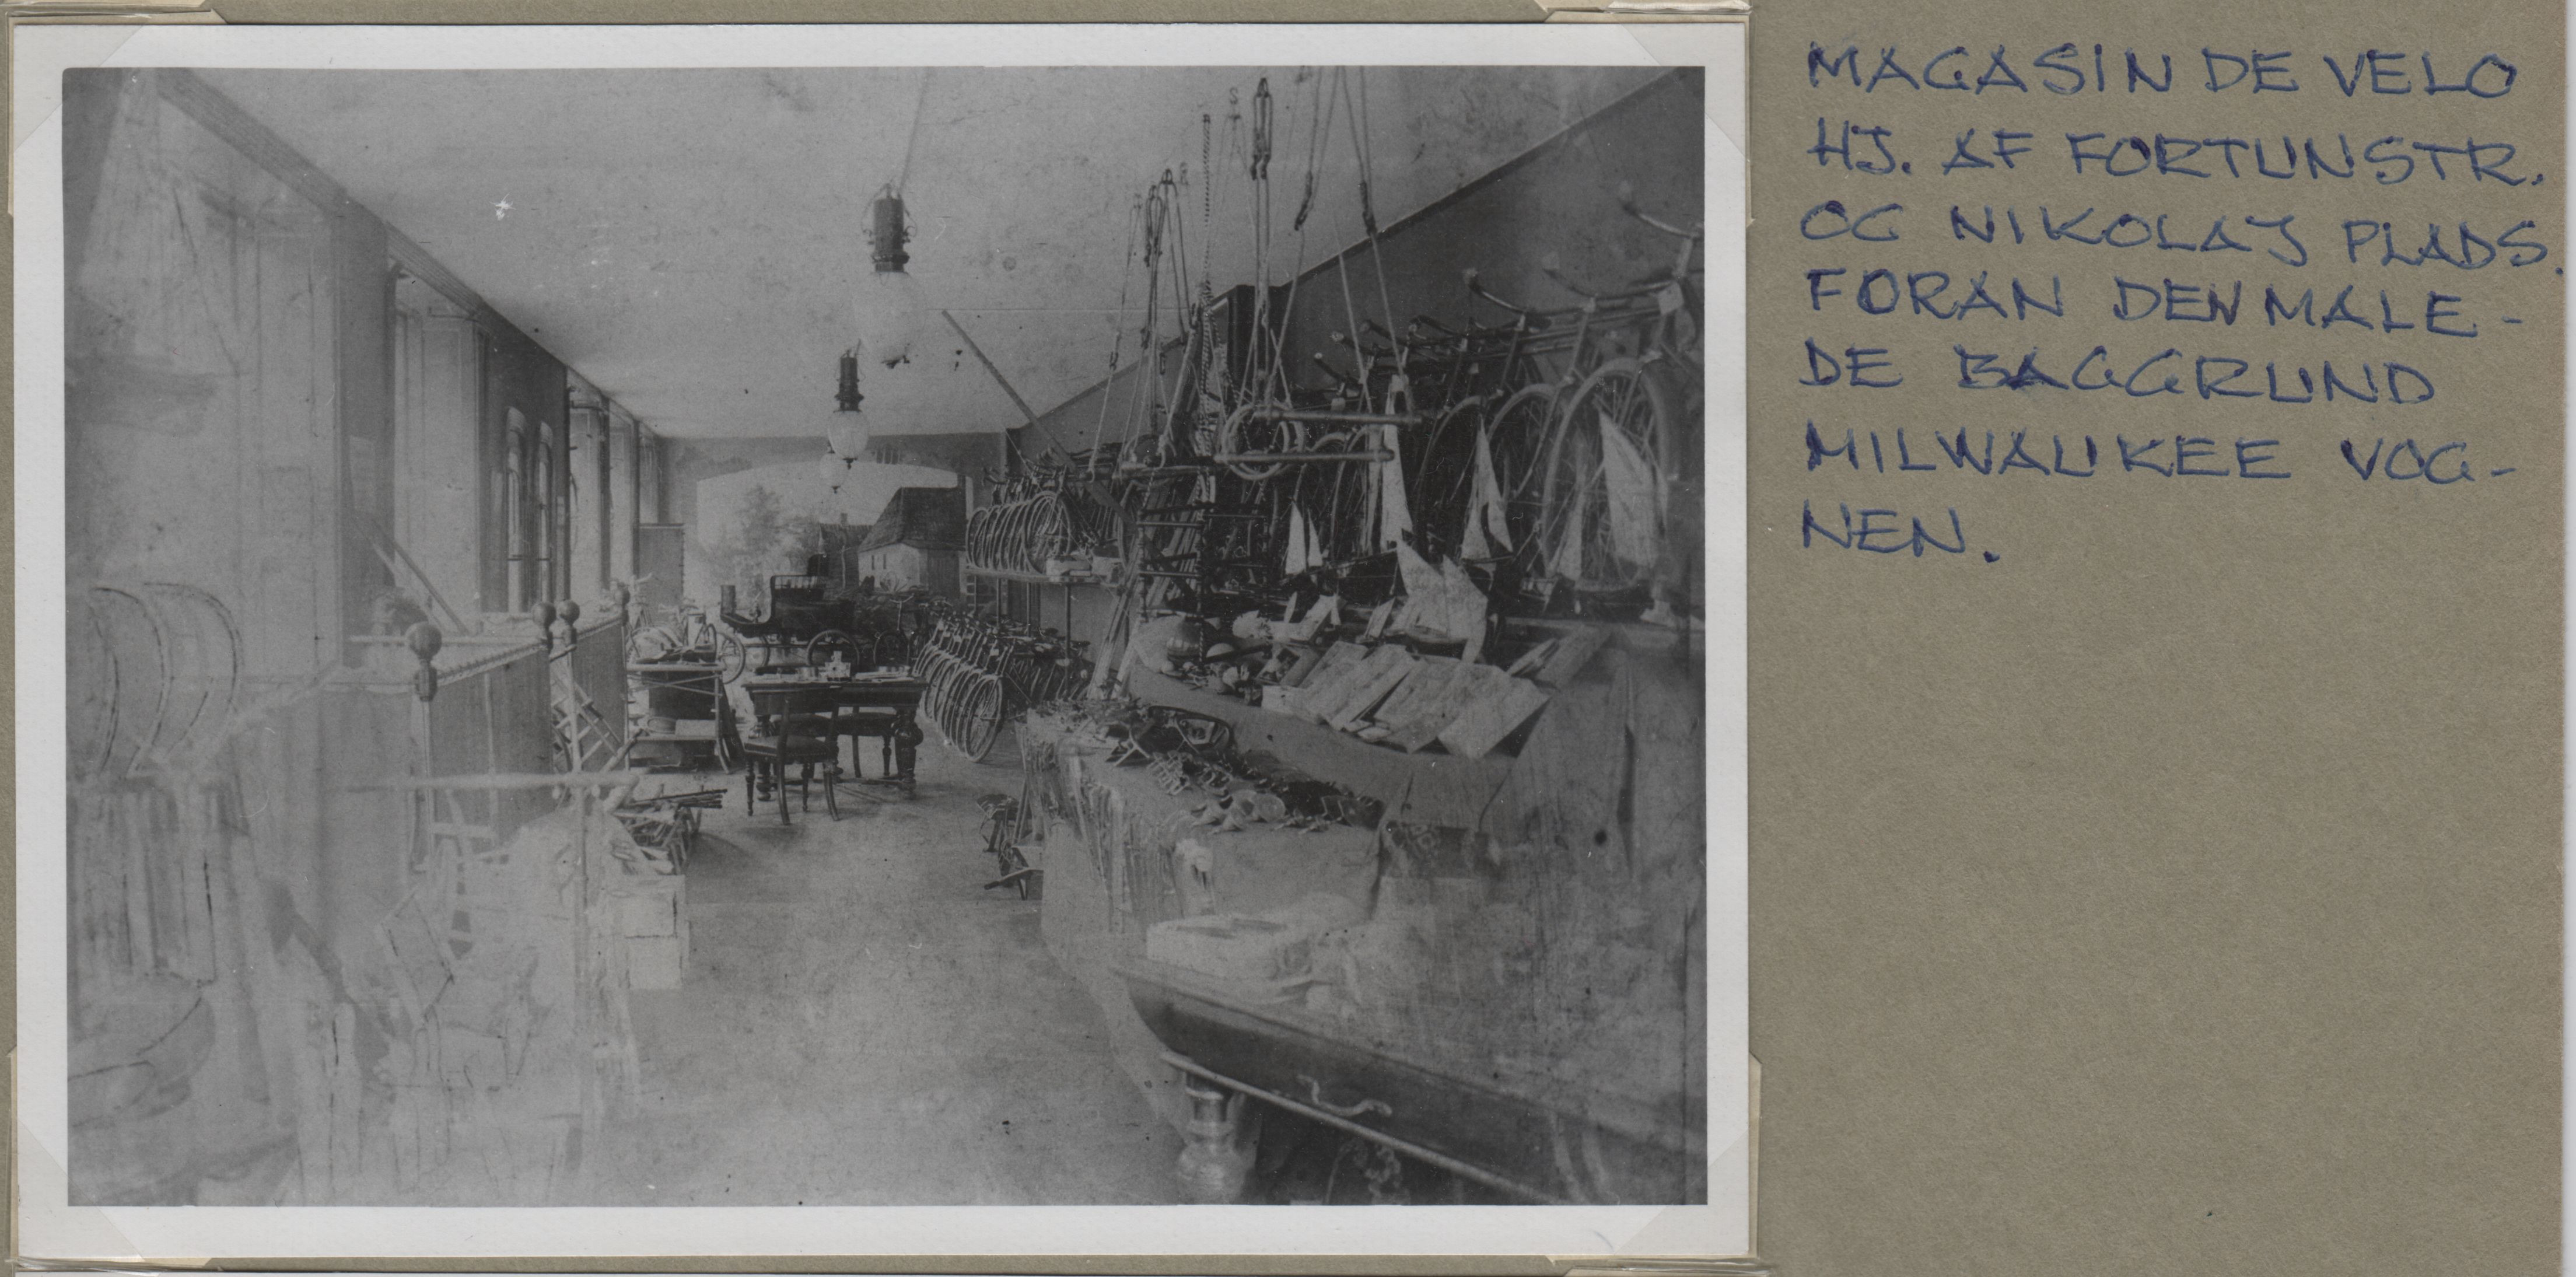 MAGASIN DE VELO
HJ. AF FORTUNSTR.
OG NIKOLAJ PLADS.
FORAN DEN MALE-
DE BAGGRUND
MILWAUKEE VOG-
NEN.